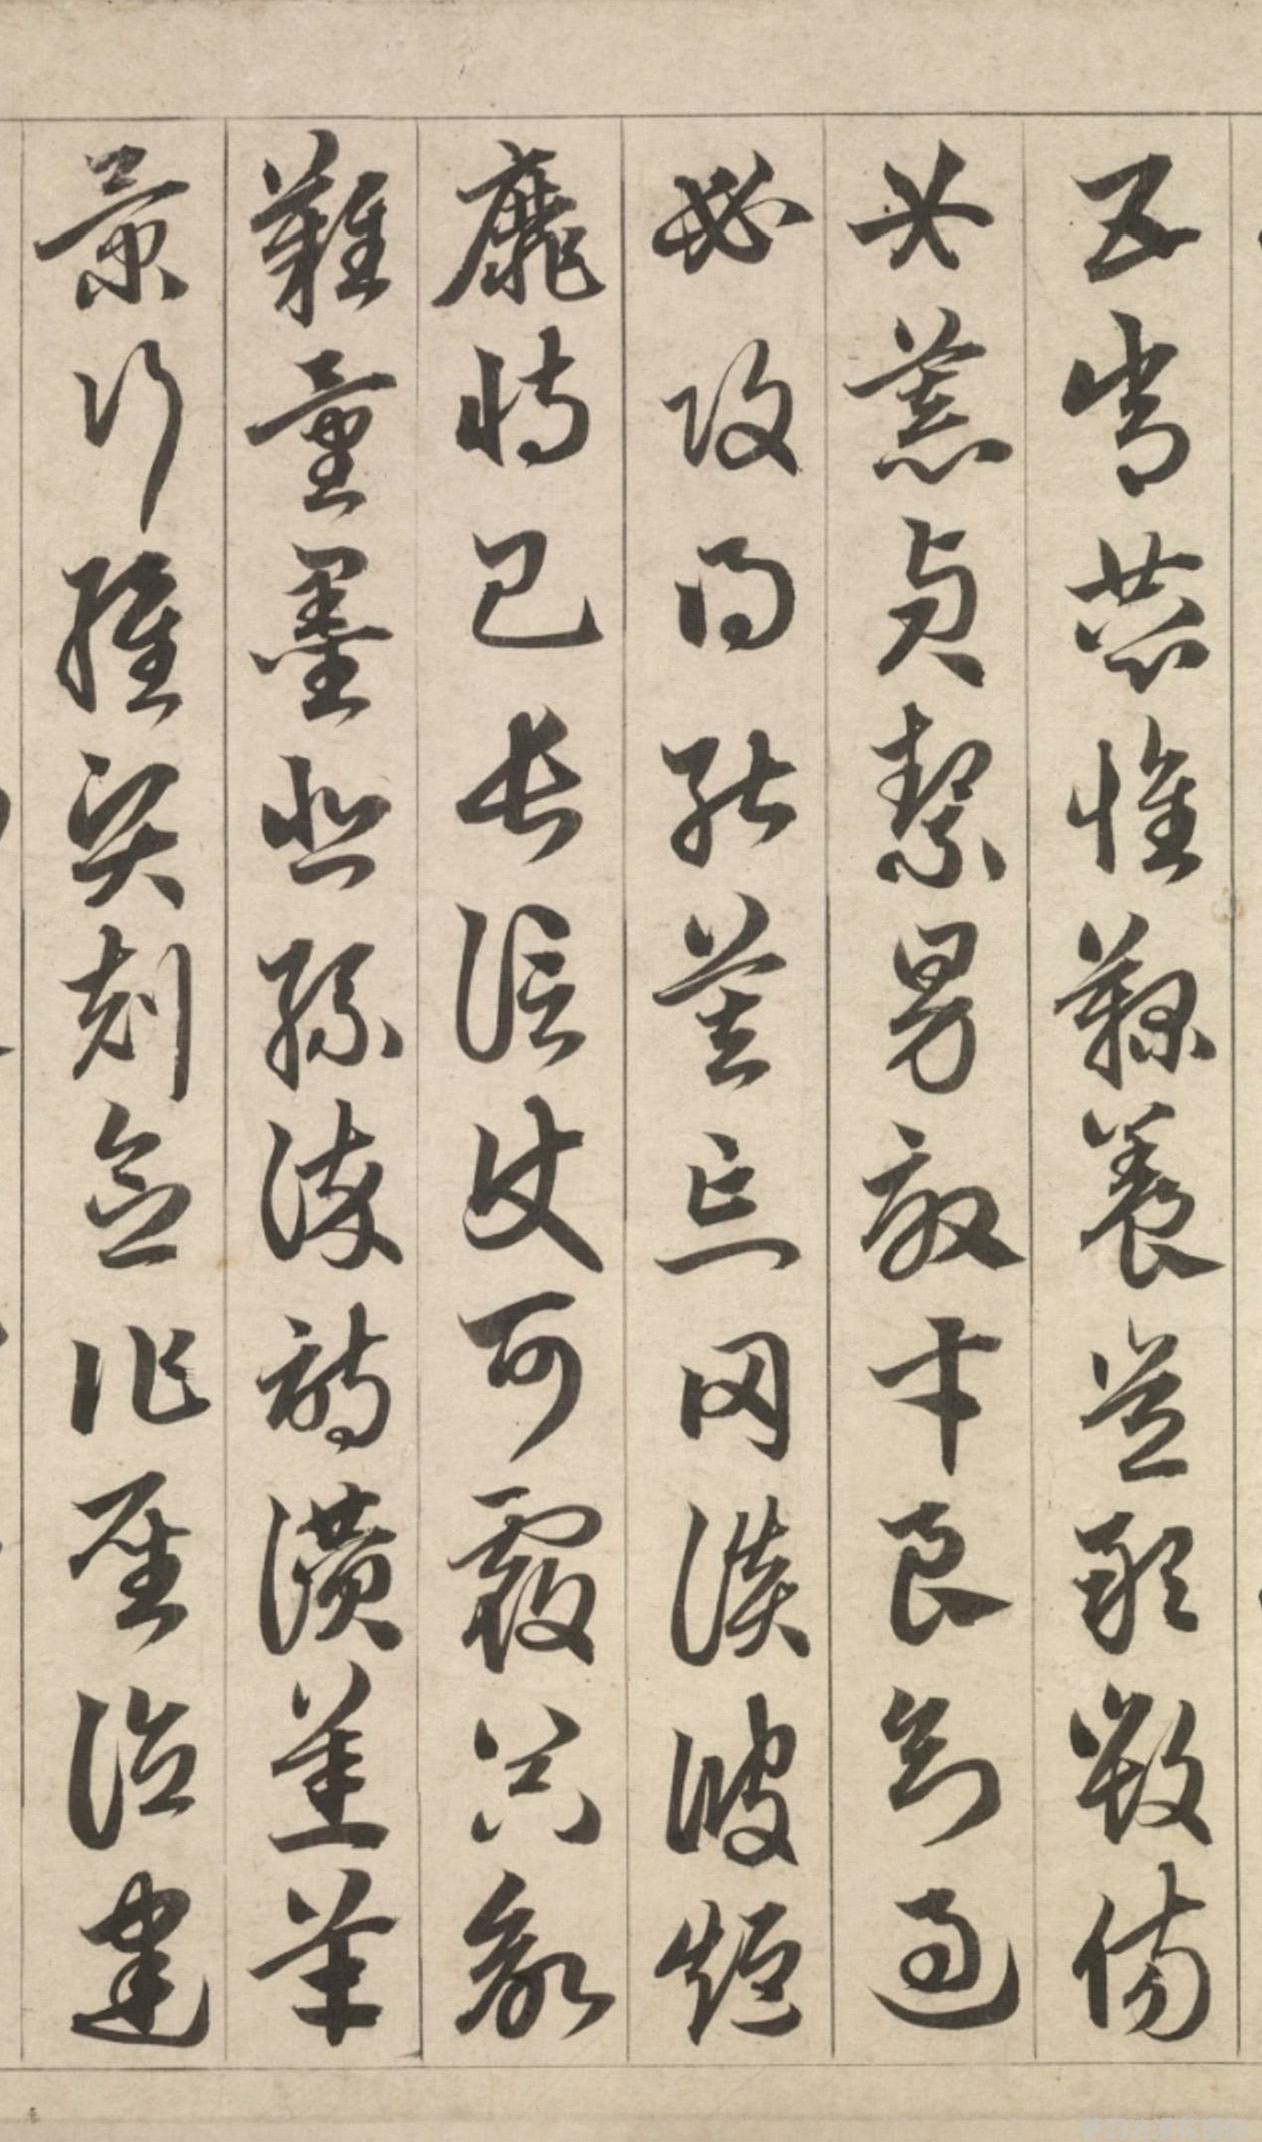 五常恭惟鞠養豈敢毀傷
女慕貞絜男效才良知過
必改得能莫忘罔談彼短
靡恃己長信使可覆器欲
難量墨悲絲染詩讚羔羊
景行維賢剋念作聖德建